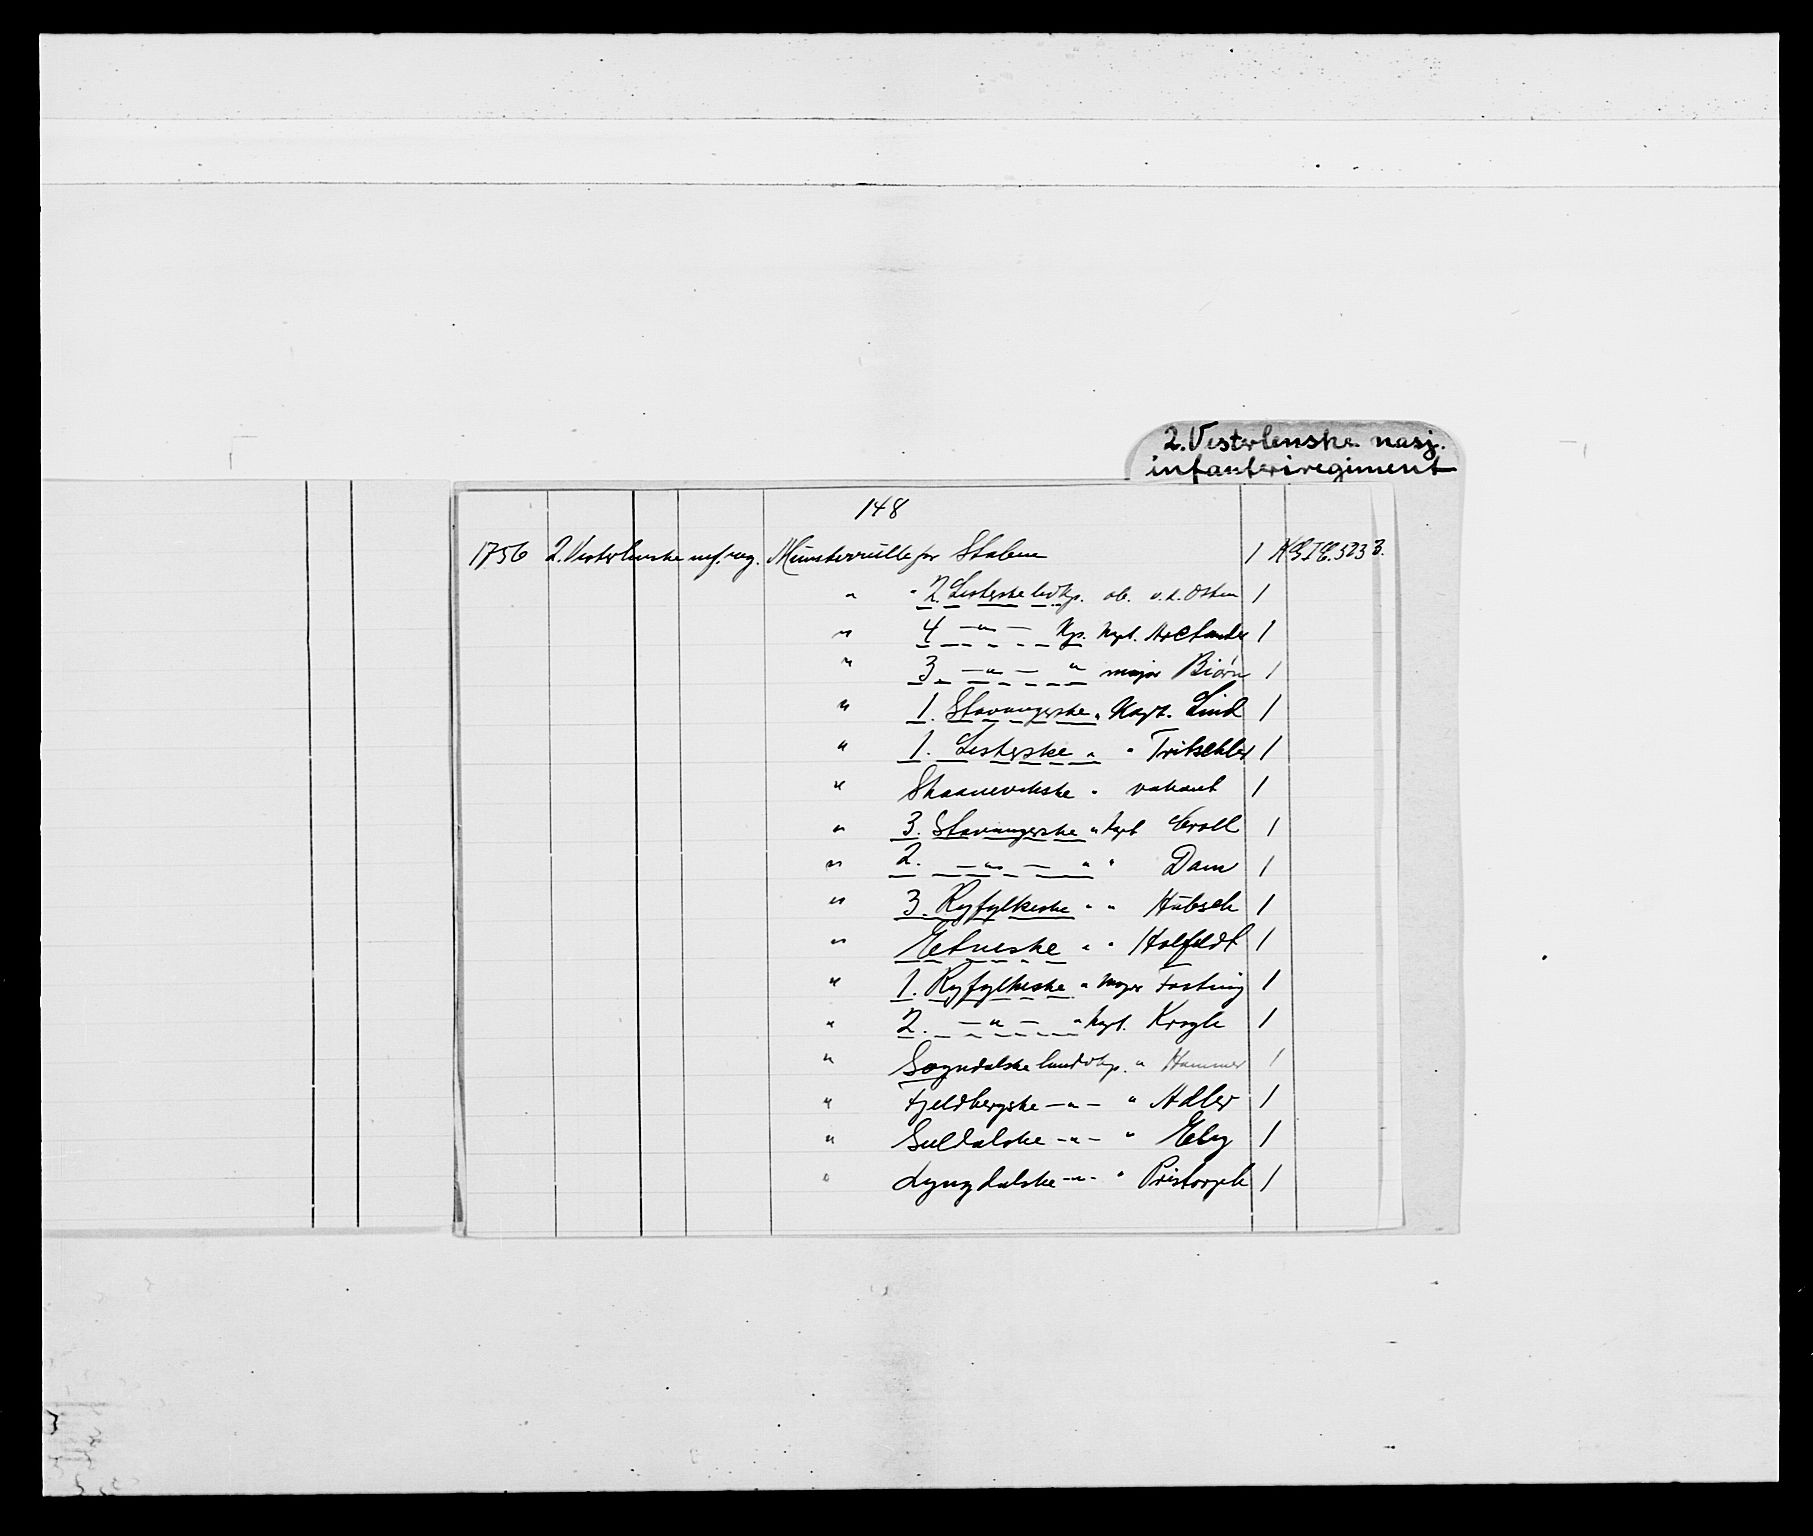 2. Vesterlenske nasj.
infanteriregiment
148
1756 2. Vesterlenske inf. reg. Mønsterrulle for Staben 1
" " 2. Listerske livkp. ob. v. d. Osten 1
" 4 —"— Kp. Kapt. 1
" 3 —"— " major Biørn 1
" 1. Stavangerske " Kapt. Lind 1
" 1. Listerske " " Tritschler 1
" Skaanevikske " vakant 1
" 3. Stavangerske " Kapt Croll 1
" 2. —"— " " Dam 1
" 3. Ryfylkeske " " Hübsch 1
" Etneske " " Holfeldt 1
" 1. Ryfylkeske " Major Fasting 1
" 2. —"— " Kapt. Krogh 1
" Sogndalske landvkp. " Hammer 1
" Fjeldbergske —"— " Adler 1
" Suldalske —"— " Eeby 1
" Lyngdalske —"— " Pristorph 1